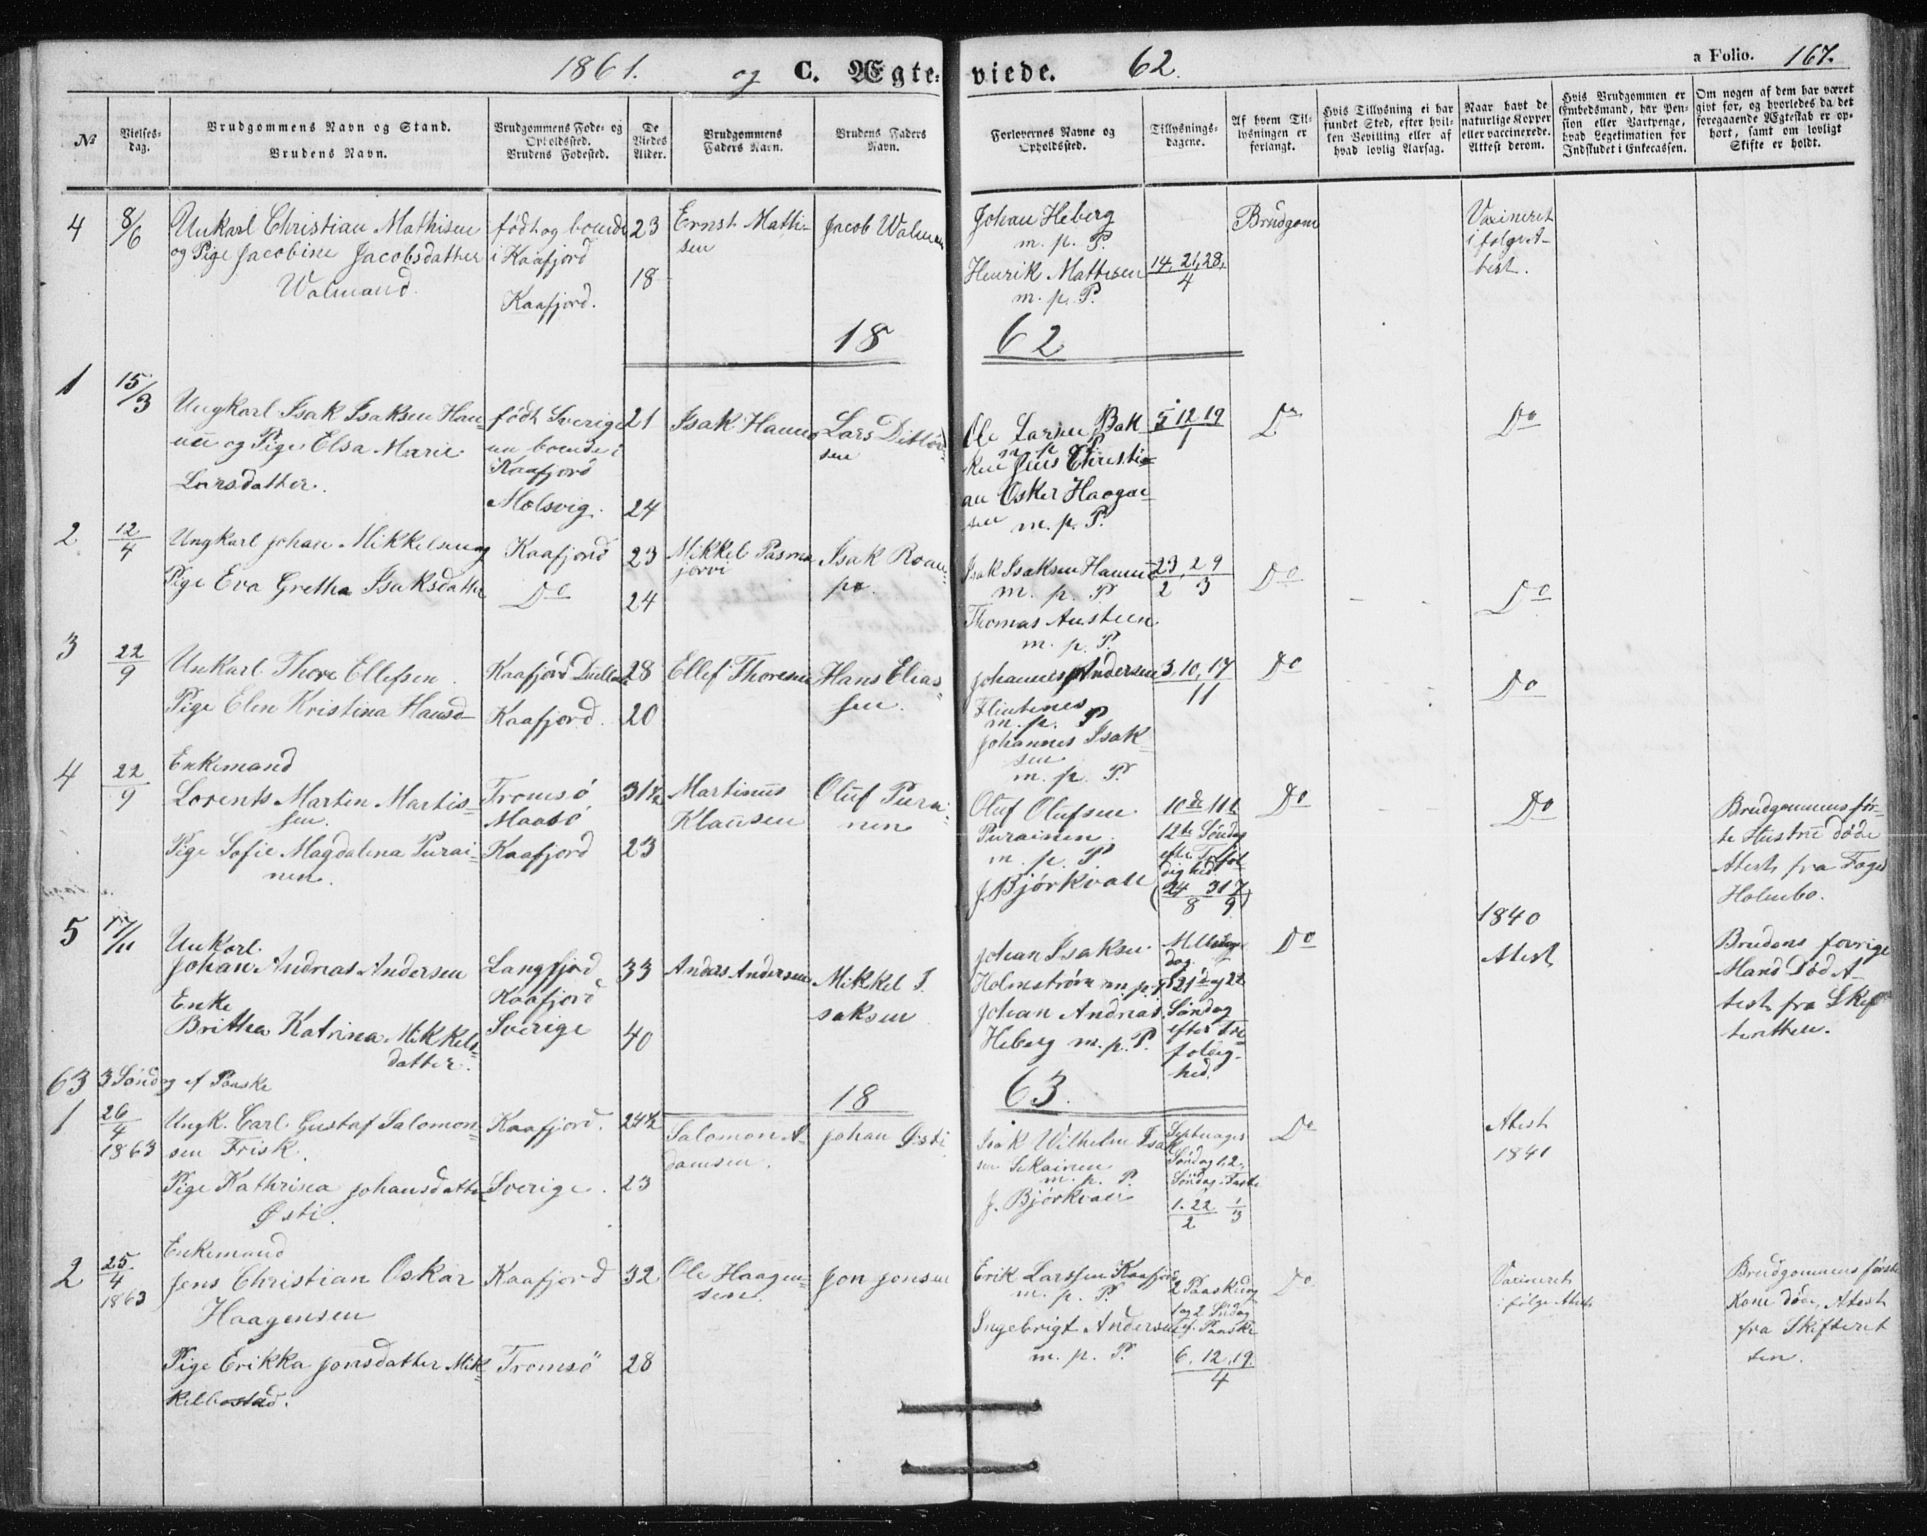 1861. og C. Ægteviede. 62. a Folio. 167.
№
Vielsesdag.
Brudgommens Navn og Stand.
Brudens Navn.
Brudgommens Føde- og Opholdssted.
Brudens Fødested.
De Viedes Alder.
Brudgommens Faders Navn.
Brudens Faders Navn.
Forlovernes Navne og Opholdssted.
Tillysningsdagene.
Af hvem Tillysningen er forlangt.
Hvis Tillysning ei har fundet Sted, efter hvilken Bevilling eller af hvad lovlig Aarsag.
Naar havt de naturlige Kopper eller vaccinerede. Attest derom.
Hvis Brudgommen er Embedsmand, har Pension eller Vartpenge, hvad Legetimation for Indskudet i Enkecassen.
Om nogen af dem har været givt for, og hvorledes da det foregaaende Ægteskab er ophørt, samt om lovligt Skifte er holdt.
4 8/6
Unkarl Christian Mathisen
og Pige Jacobine Jacobsdatter
Walmand.
født og boende
i Kaafjord
Kaafjord.
23
18
Ernst Mathi-
sen
Jacob Walman
Johan Heberg
m. p. P.
Henrik Mathisen
m. p. P.
14, 21, 28,
4
Brudgom
Vaxineret
ifølge A-
test.
18 62
1 15/3
Ungkarl Isak Isaksen Han-
nu og Pige Elsa Marie
Larsdatter.
født Sverige
nu boende i
Kaafjord
Molsvig.
21
24
Isak Hannu
Lars Ditlev-
sen
Ole Larsen Bak
m. p. P.
ken Jens Christi-
an Osker Haagen-
sen m. p. P.
5 12 19
1
Do
Do
2 12/4
Ungkarl Johan Mikkelsen og
Pige Eva Gretha Isaksdatter
Kaafjord
Do
23
24
Mikkel Pasma
jervi
Isak Roan-
pa.
Isak Isaksen Hannu
m. p. P.
Thomas Austeen
m. p. P.
23, 2 9
2 3
Do
Do
3 22/9
Unkarl Thore Ellefsen.
Pige Elen Kristina Hansd-
Kaafjord
Kaafjord.
28
20
Ellef Thoresen
Hans Elias-
sen.
Johannes Andersen
Flintenes
m. p. P.
Johannes Isak-
sen
m. p. P.
3, 10, 17
11
Do
Do
4 22/9
Enkemand
Lorents Martin Martis-
sen.
Pige Sofie Magdalena Purai-
nen.
Tromsø
Maasø
Kaafjord
31½
23
Martinus
Klausen
Oluf Purai-
nen
Oluf Olufsen
Purainen.
m. p. P.
J. Bjørkvall
10de 11te
12te Søndag
efter Trefol-
dighed
(24 31 7
8 9)
Do
Do
Brudgommens før-
te Hustru døde
Atest fra Foged
Holmbo.
5 17/11
Unkarl
Johan Andreas Andersen
Enke
Brittha Katrina Mikkels-
datter.
Langfjord
Kaafjord
Sverige
33
40
Anders Andersen
Mikkel I-
saksen
Johan Isaksen
Holmstrøm m. p. P.
Johan Andreas
Heberg m. p. P.
dag.
21de og 22
Søndag
efter Tre
foldig-
hed.
Do
1840
Atest
Brudens forrige
Mand Død A-
test fra Skif
teretten.
63 3 Søndag ef Paaske
18 63.
1 26/4 1863
Ungk. Carl Gustaf Salomon-
sen Frisk.
Pige Kathrina Johansdatter
Østi.
Kaafjord.
Sverige.
24½
23
Salomon A-
damsen.
Johan Østi
Isak Wilhelm Isak
sen
m. p. P.
J. Bjørkvall
Septuages
Søndag 1, 2,
Søndag i Faste
1. 22 1
2 3
Do
Atest
1841
2 25/4 1863
Enkemand
Jens Christian Oskar
Haagensen
Pige Erikka Jonsdatter Mik-
kelbostad.
Kaafjord
Tromsø
32
28
Ole Haagen-
sen.
Jon Jonsen
Erik Larssen Kaafjord
m. p. P.
Ingebrigt Andersen
m. p. P.
2 Paaskedag
1 og 2 Søndag
ef. Paaske
6, 12, 19.
4
Do
Vaxineret
ifølge Atest
Brudgommens første
Kone døde, Atest
fra Skifteret
ten.